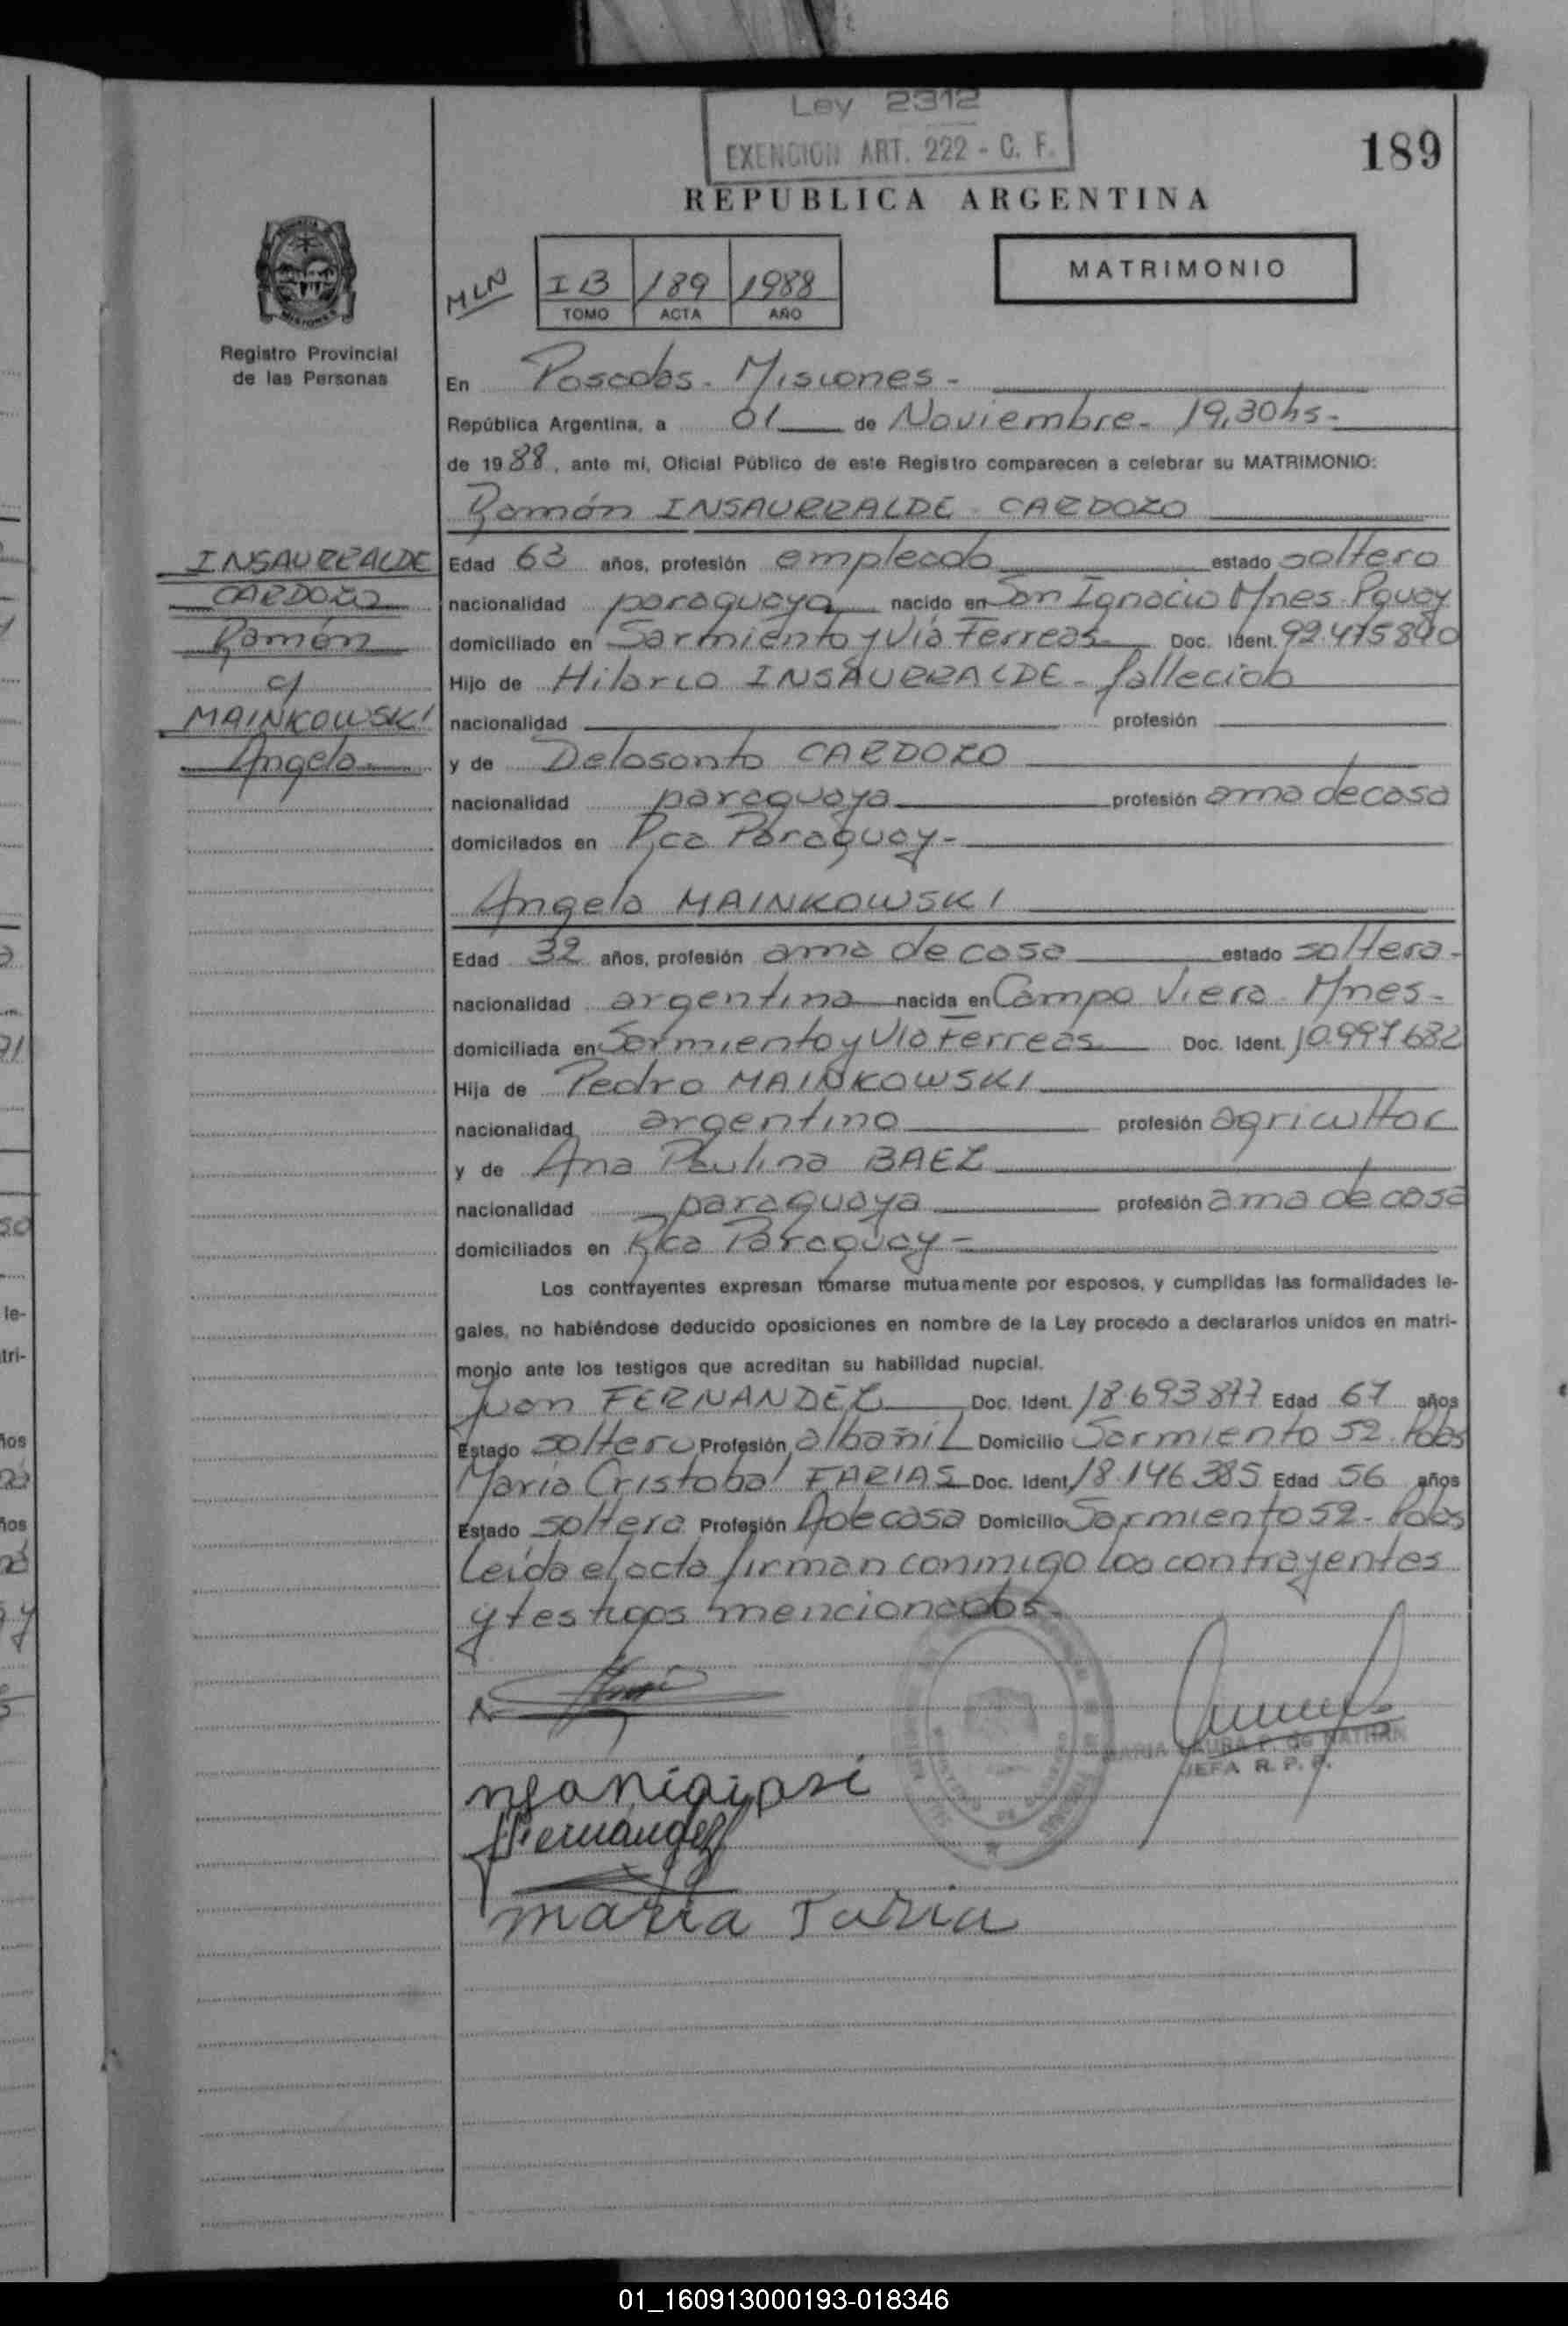 Ley 2312
EXENCION ART. 222 - C. F.
189
REPUBLICA ARGENTINA
MATRIMONIO
MLN
I B 189 1988
TOMO ACTA AÑO
Registro Provincial
de las Personas
En Posadas - Misiones -
República Argentina, a 01 de Noviembre - 19,30hs -
de 1988, ante mi, Oficial Público de este Registro comparecen a celebrar su MATRIMONIO:
Ramón INSAURRALDE CARDOZO
INSAURRALDE
CARDOZO
Ramón
c/
MAINKOWSKI
Angela
Edad 63 años, profesión empleado estado soltero
nacionalidad paraguaya nacido en San Ignacio Mnes. Pguay
domiciliado en Sarmiento y Vía Ferreas Doc. Ident. 92.475840
Hijo de Hilario INSAURRALDE - fallecido
nacionalidad profesión
y de Delosanto CARDOZO
nacionalidad paraguaya profesión ama de casa
domicilados en Rca Paraguay -
Angela MAINKOWSKI
Edad 32 años, profesión ama de casa estado soltera -
nacionalidad argentina nacida en Campo Viera - Mnes -
domiciliada en Sarmiento y Vía Ferreas Doc. Ident. 10.997682
Hija de Pedro MAINKOWSKI
nacionalidad argentino profesión agricultor
y de Ana Paulina BAEZ
nacionalidad paraguaya profesión ama de casa
domiciliados en Rca Paraguay -
Los contrayentes expresan tomarse mutuamente por esposos, y cumplidas las formalidades le-
gales, no habiéndose deducido oposiciones en nombre de la Ley procedo a declararlos unidos en matri-
monio ante los testigos que acreditan su habilidad nupcial.
Juan FERNANDEZ Doc. Ident. 18.693877 Edad 67 años
Estado soltero Profesión albañil Domicilio Sarmiento 52 - Pdas
María Cristobal FARIAS Doc. Ident. 18.146.385 Edad 56 años
Estado soltera Profesión A de casa Domicilio Sarmiento 52 - Pdas
Leída el acta firman conmigo los contrayentes
y testigos mencionados -
MARIA LAURA P. DE
JEFA R. P. P.
Fernández
maria Faria
01_160913000193-018346